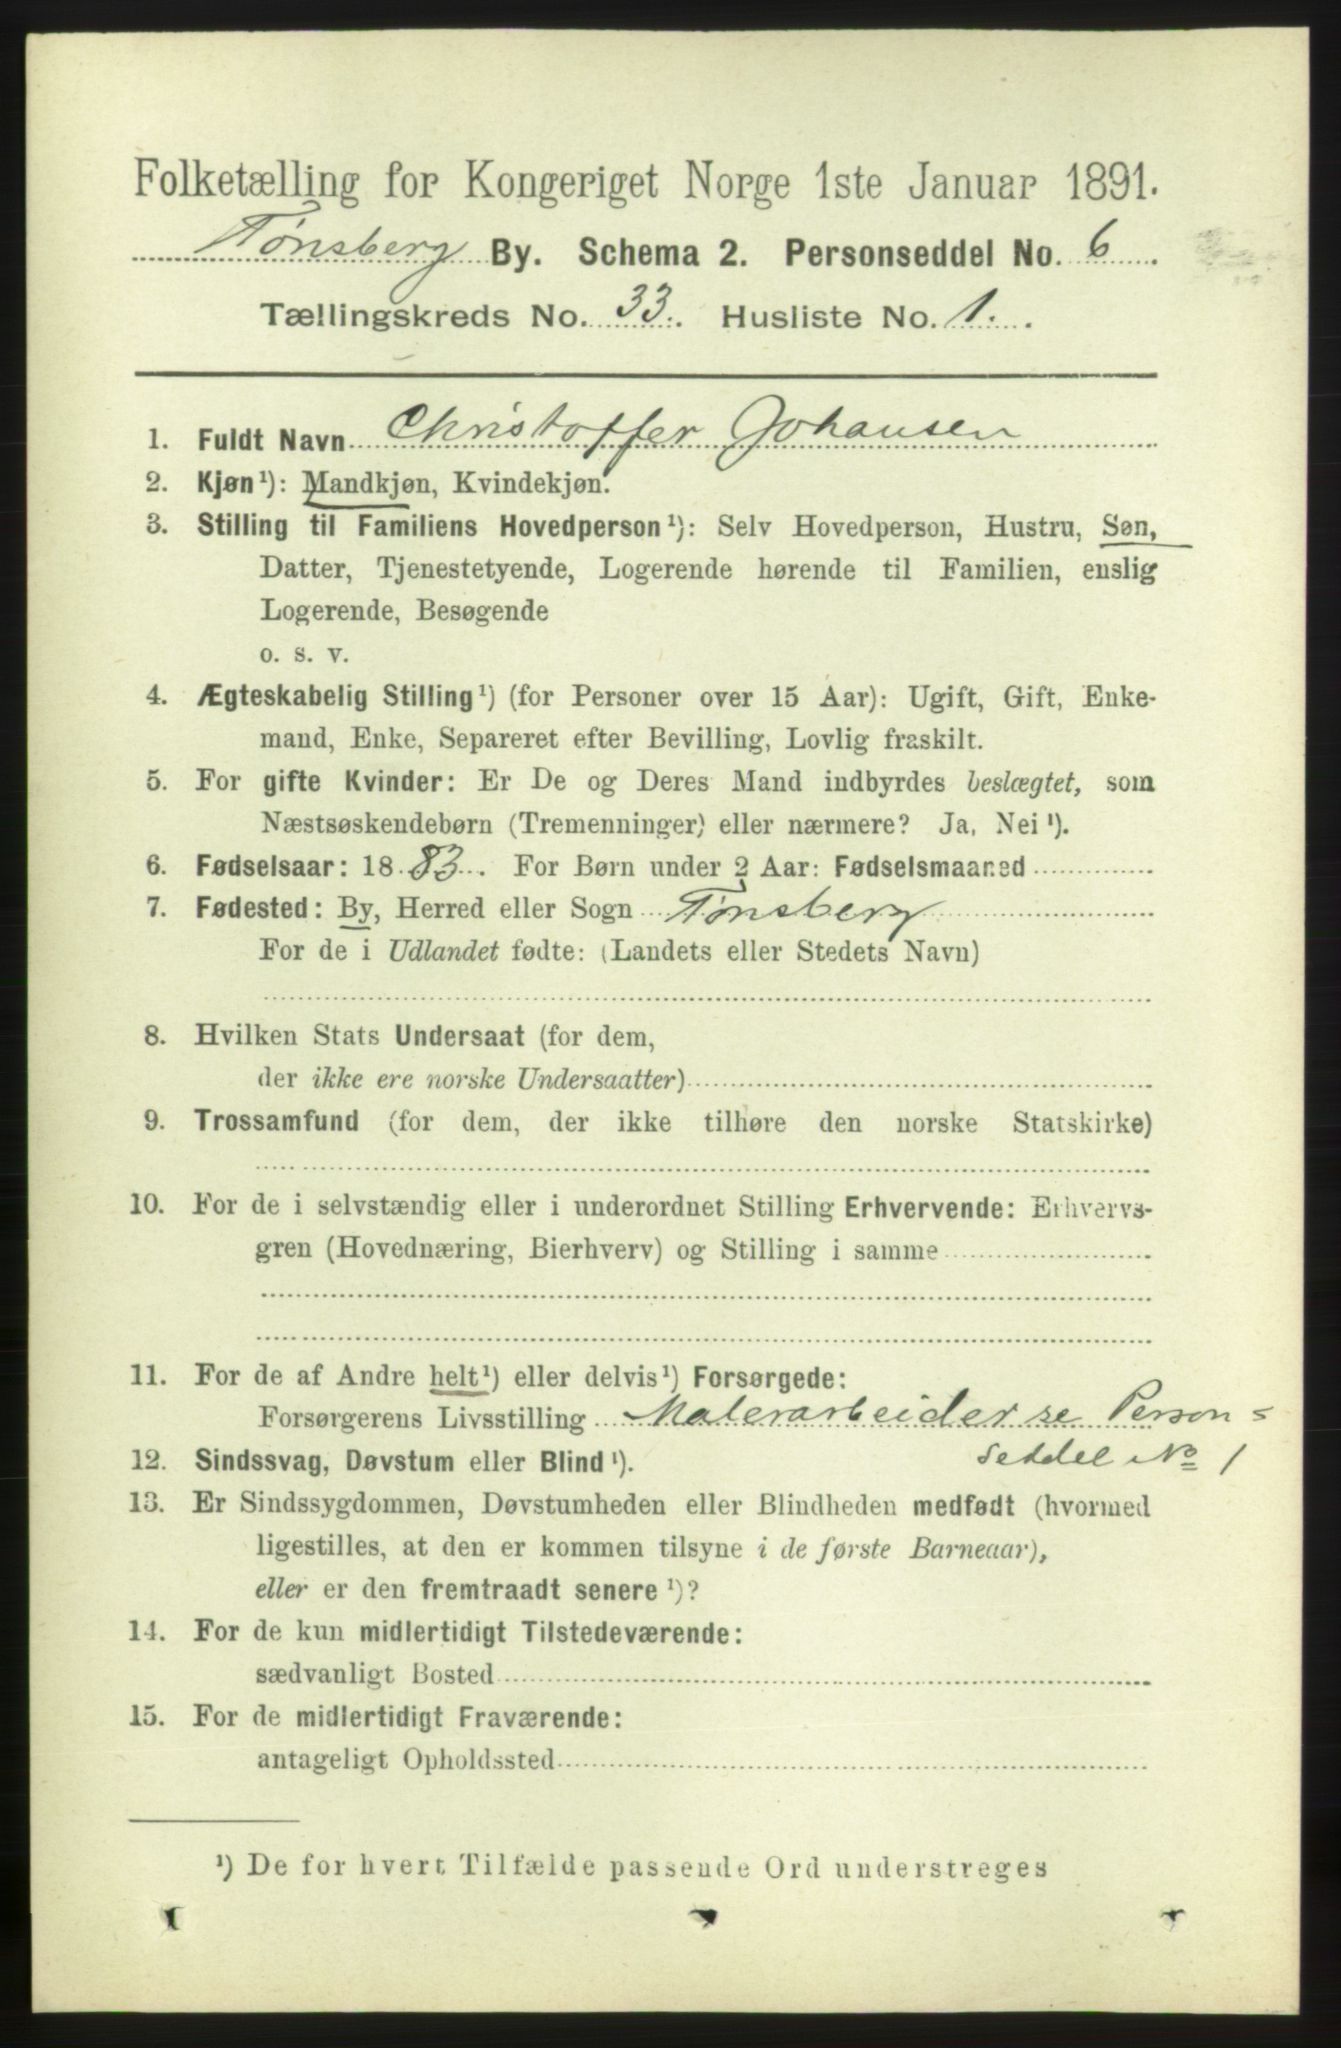 Folketælling for Kongeriget Norge 1ste Januar 1891.
Tønsberg By. Schema 2. Personseddel No. 6
Tællingskreds No. 33. Husliste No. 1.
1. Fuldt Navn Christoffer Johansen
2. Kjøn¹): Mandkjøn, Kvindekjøn.
3. Stilling til Familiens Hovedperson¹): Selv Hovedperson, Hustru, Søn,
Datter, Tjenestetyende, Logerende hørende til Familien, enslig
Logerende, Besøgende
o. s. v.
4. Ægteskabelig Stilling¹) (for Personer over 15 Aar): Ugift, Gift, Enke-
mand, Enke, Separeret efter Bevilling, Lovlig fraskilt.
5. For gifte Kvinder: Er De og Deres Mand indbyrdes beslægtet, som
Næstsøskendebørn (Tremenninger) eller nærmere? Ja, Nei¹).
6. Fødselsaar: 1883. For Børn under 2 Aar: Fødselsmaaned
7. Fødested: By, Herred eller Sogn Tønsberg
For de i Udlandet fødte: (Landets eller Stedets Navn)
8. Hvilken Stats Undersaat (for dem,
der ikke ere norske Undersaatter)
9. Trossamfund (for dem, der ikke tilhøre den norske Statskirke)
10. For de i selvstændig eller i underordnet Stilling Erhvervende: Erhvervs-
gren (Hovednæring, Bierhverv) og Stilling i samme
11. For de af Andre helt¹) eller delvis¹) Forsørgede:
Forsørgerens Livsstilling Malerarbeider se Person=
seddel No 1
12. Sindssvag, Døvstum eller Blind¹).
13. Er Sindssygdommen, Døvstumheden eller Blindheden medfødt (hvormed
ligestilles, at den er kommen tilsyne i de første Barneaar),
eller er den fremtraadt senere¹)?
14. For de kun midlertidigt Tilstedeværende:
sædvanligt Bosted
15. For de midlertidigt Fraværende:
antageligt Opholdssted
¹) De for hvert Tilfælde passende Ord understreges